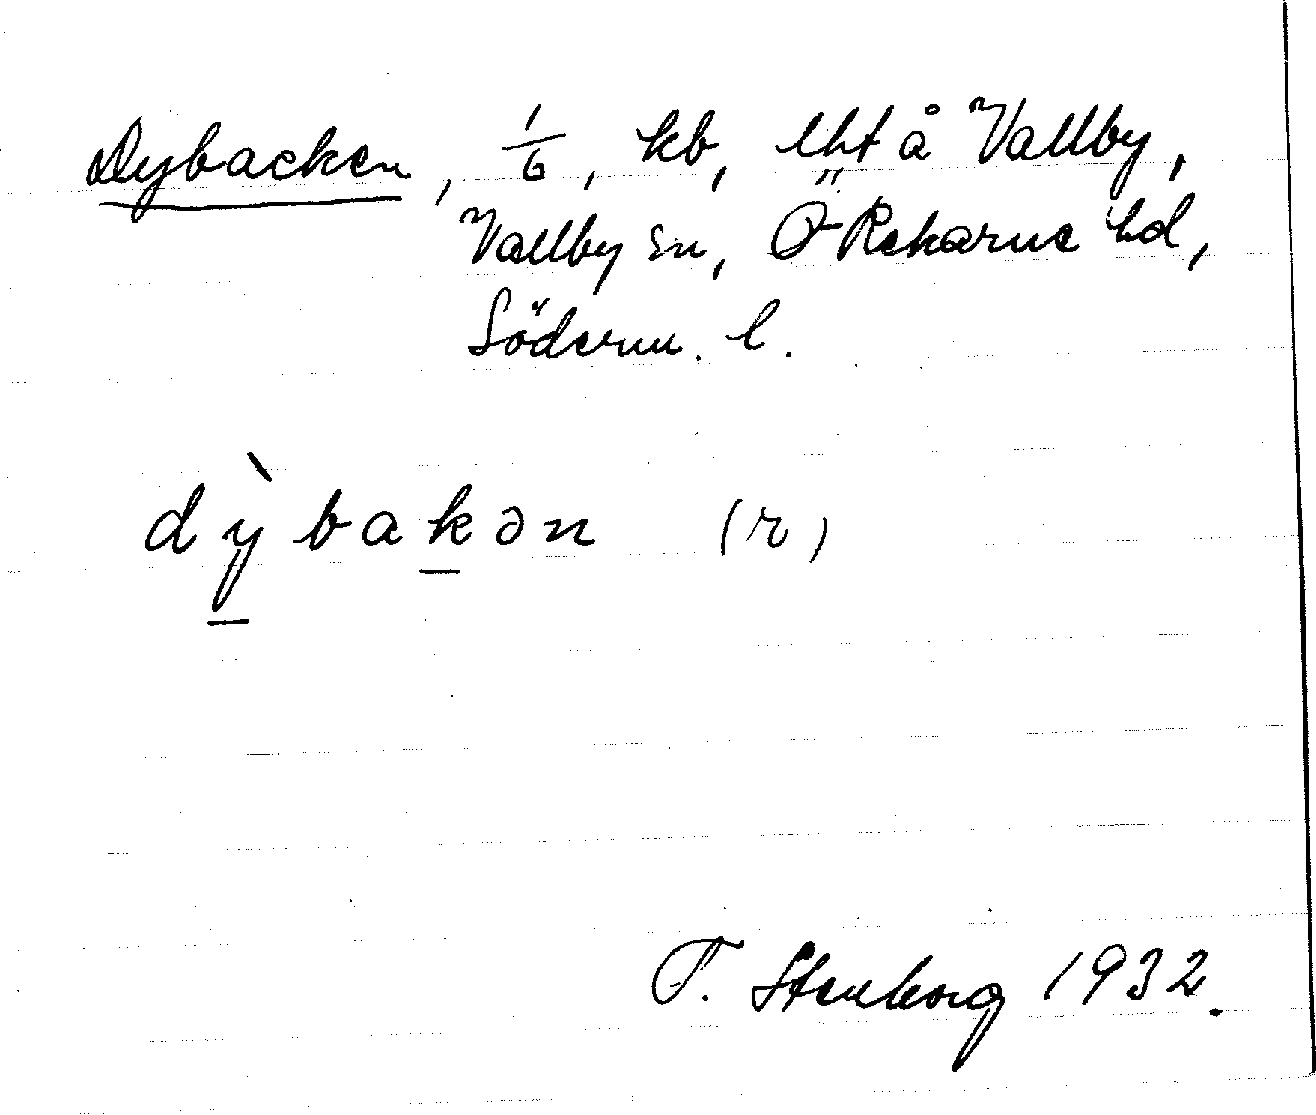 Dybacken, 1/6, kb, lht å Vallby,
Vallby sn, Ö Rekarne hd,
Söderm. l.
dỳbakən (r)
F. Stenborg 1932.